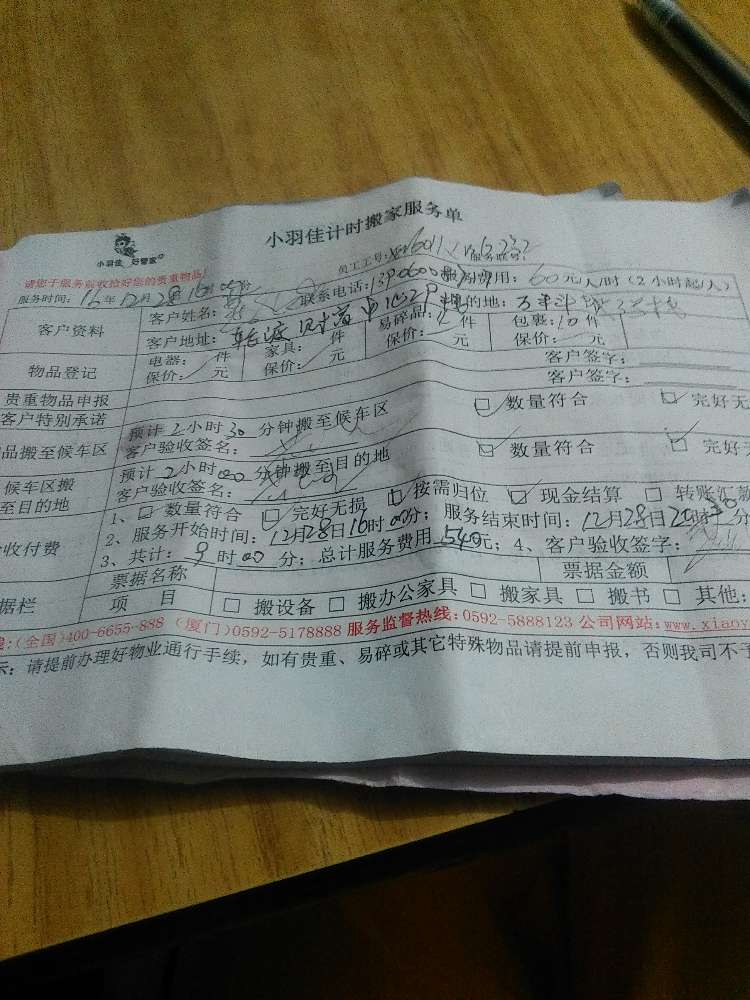 小羽佳计时搬家服务单
小羽佳 好管家
员工工号: 服务账号:
请您于服务前收捡好您的贵重物品!
服务时间: 16年12月28日16时00分 联系电话: 费用: 60元/人/时 (2小时起/人)
客户资料 客户姓名:
客户地址: 目的地:
物品登记 电器: 件 家具: 件 易碎品: 件 包裹: 10件
保价: 元 保价: 元 保价: 元 保价: 元
贵重物品申报 客户签字:
客户特别承诺 客户签字:
品搬至候车区 预计2小时30分钟搬至候车区 数量符合 完好无
客户验收签名:
候车区搬至目的地 预计2小时00分钟搬至目的地 数量符合 完好
客户验收签名:
收付费 1、 数量符合 完好无损 按需归位 现金结算 转账汇款
2、服务开始时间: 12月28日16时00分; 服务结束时间: 12月28日20时30分
3、共计: 9时00分; 总计服务费用540元; 4、客户验收签字:
据栏 票据名称 票据金额
项 目 搬设备 搬办公家具 搬家具 搬书 其他:
(全国)400-6655-888 (厦门)0592-5178888 服务监督热线: 0592-5888123 公司网站: www.xiaoy
示: 请提前办理好物业通行手续, 如有贵重、易碎或其它特殊物品请提前申报, 否则我司不予